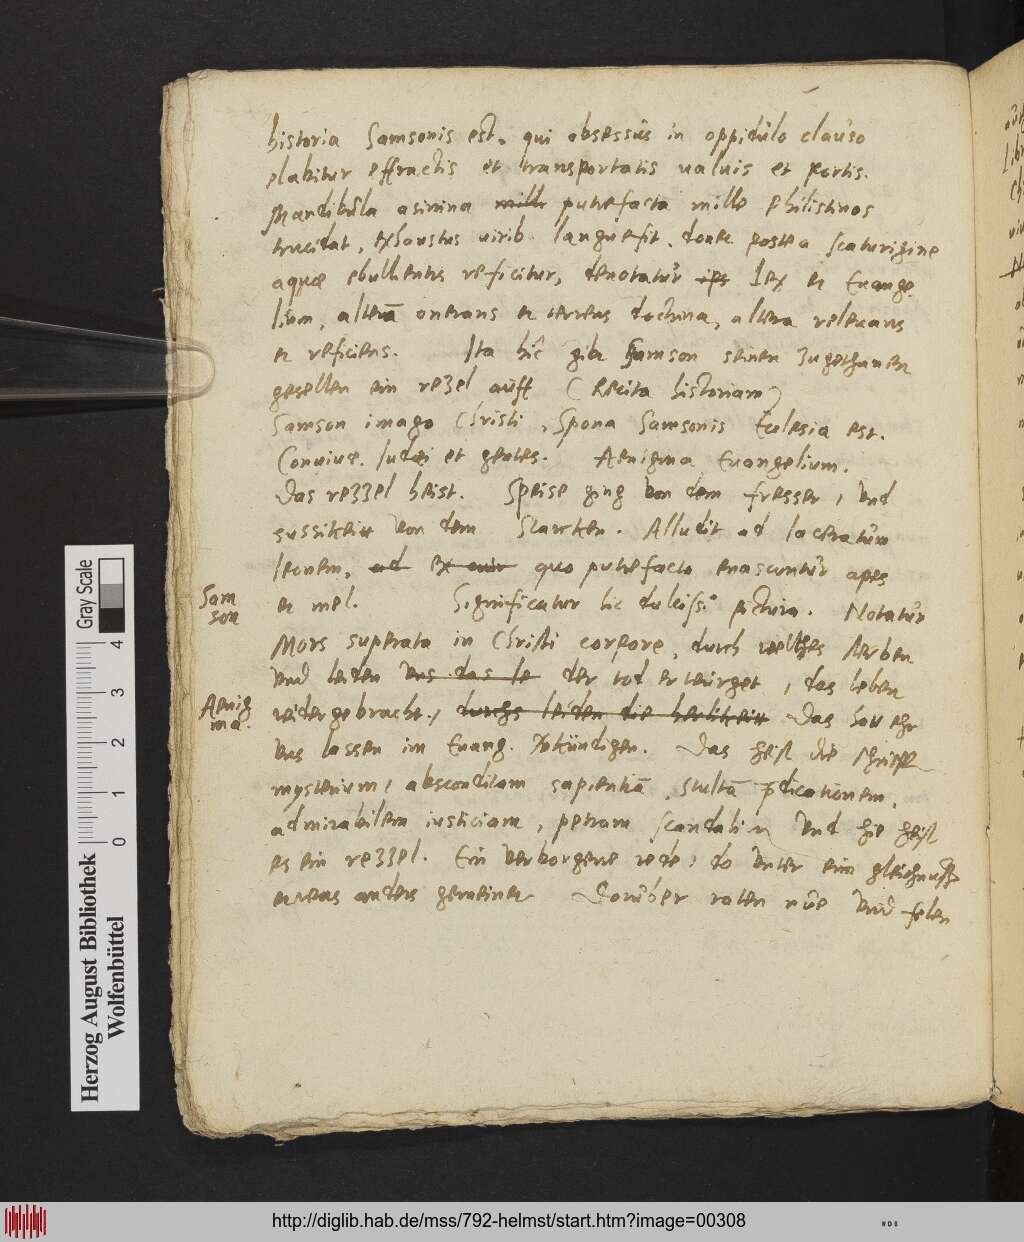 historia Samsonis est, qui obsessus in oppidulo clauso
elabitur effractis et transportatis ualuis et portis.
Mandibula asinina mille putrefacta mille Philistinos
trucidat, exhaustus uirib. languescit, donec postea scaturigine
aquæ ebullientis reficitur, denotatur ips Lex et Euange
lium, alterā onerans et terrens doctrina, altera releuans
et reficiens. Ita hîc gibt Samson seinen zugethanen
gesellen ein rezel auff (Recita historiam)
Samson imago Christi, Spona Samsonis Ecclesia est.
Conuiuæ. Iudæi et gentes. Aenigma Euangelium.
Das rezzel heist. Speise ging von dem fresser, vnd
sussikeitt von dem Starcken. Alludit ad laceratum
leonem, ad ex cuir quo putrefacto enascuntur apes
et mel. Significatur hic dulciss.ᵃ pictura. Notatur
Sam
son
Mors superata in Christi corpore, durch welches sterben
vnd leiden vns das le der tod erwürget, das leben
widergebracht, durchs leiden die herlikeitt Das hatt ehr
Aenig
ma.
vns lassen im Euang. vorkündigen. Das heist die schrifft
mysterium, absconditam sapientiā, stultā prædicationem,
admirabilem iusticiam, petram scandali vnd hie heist
es ein rezzel. Ein verborgene rede, do vnter eim gleichnuß
etwas anders gemeinet Doruber raten nue vnd felen
Herzog August Bibliothek
Wolfenbüttel
Gray Scale
0 1 2 3 4
http://diglib.hab.de/mss/792-helmst/start.htm?image=00308